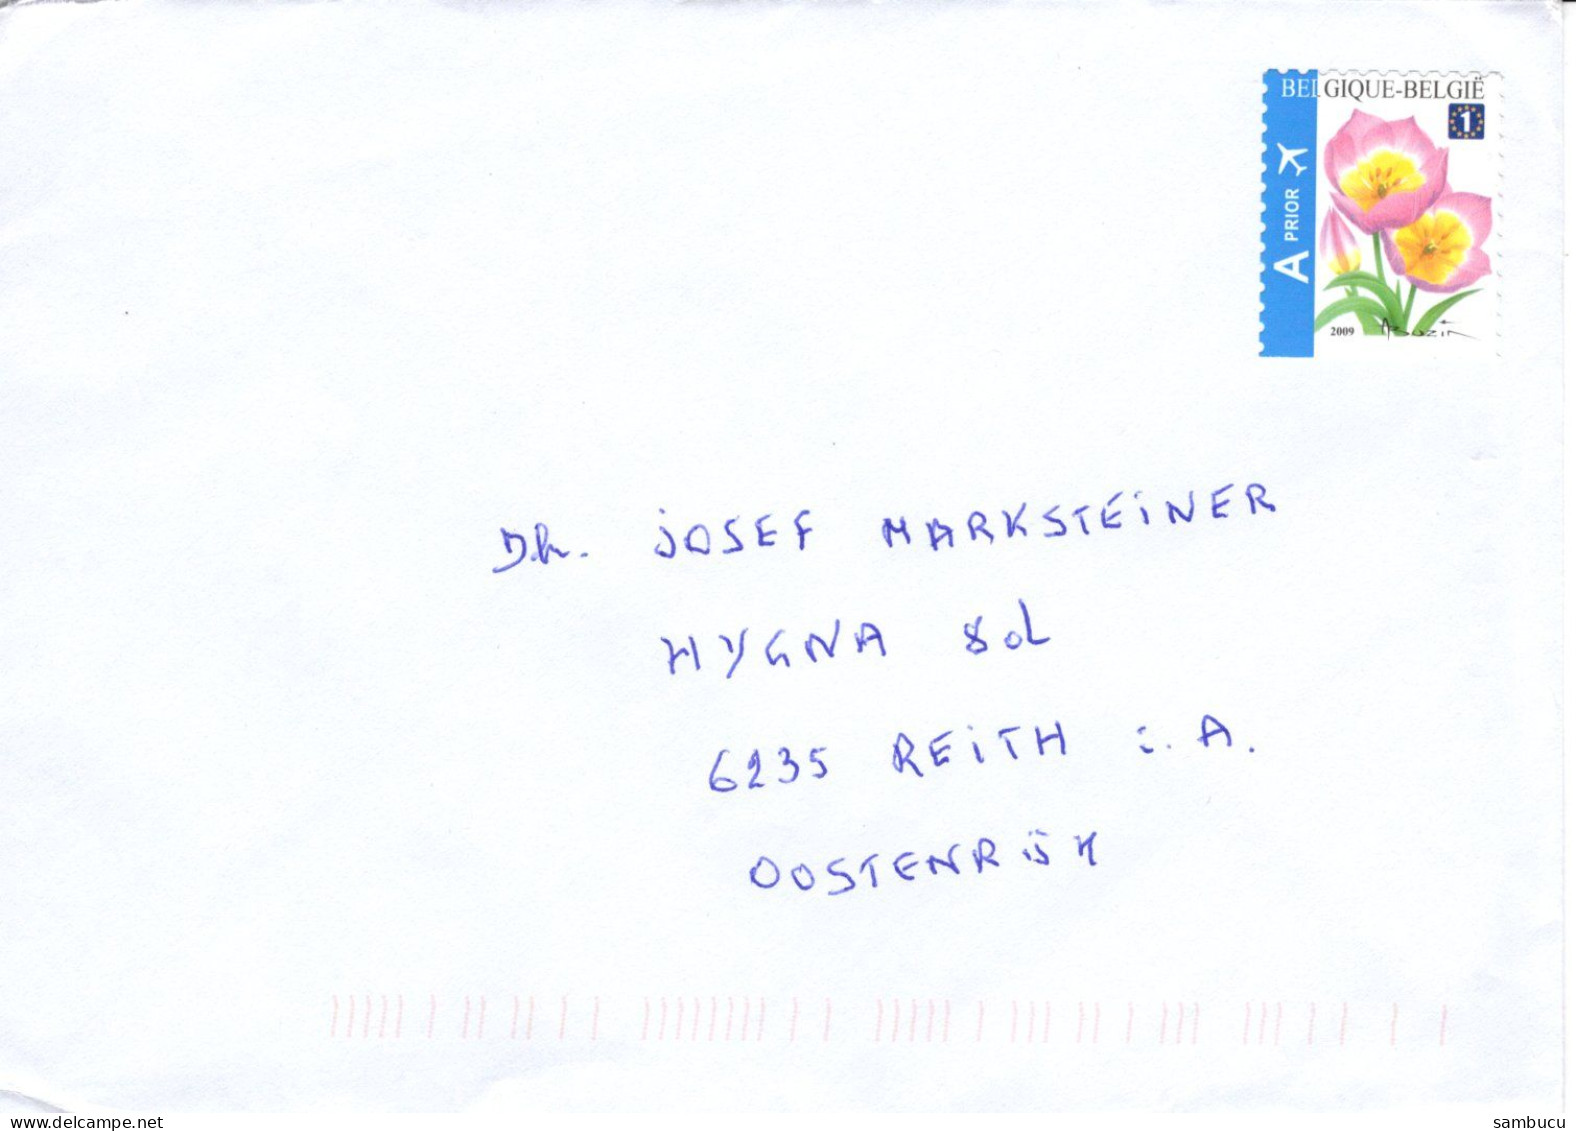 BELGIQUE-BELGIË
1
A PRIOR
2009
ABuzin
Dr. JOSEF MARKSTEINER
HYGNA 80L
6235 REITH i.A.
OOSTENRIJK
delcampe.net
sambucu